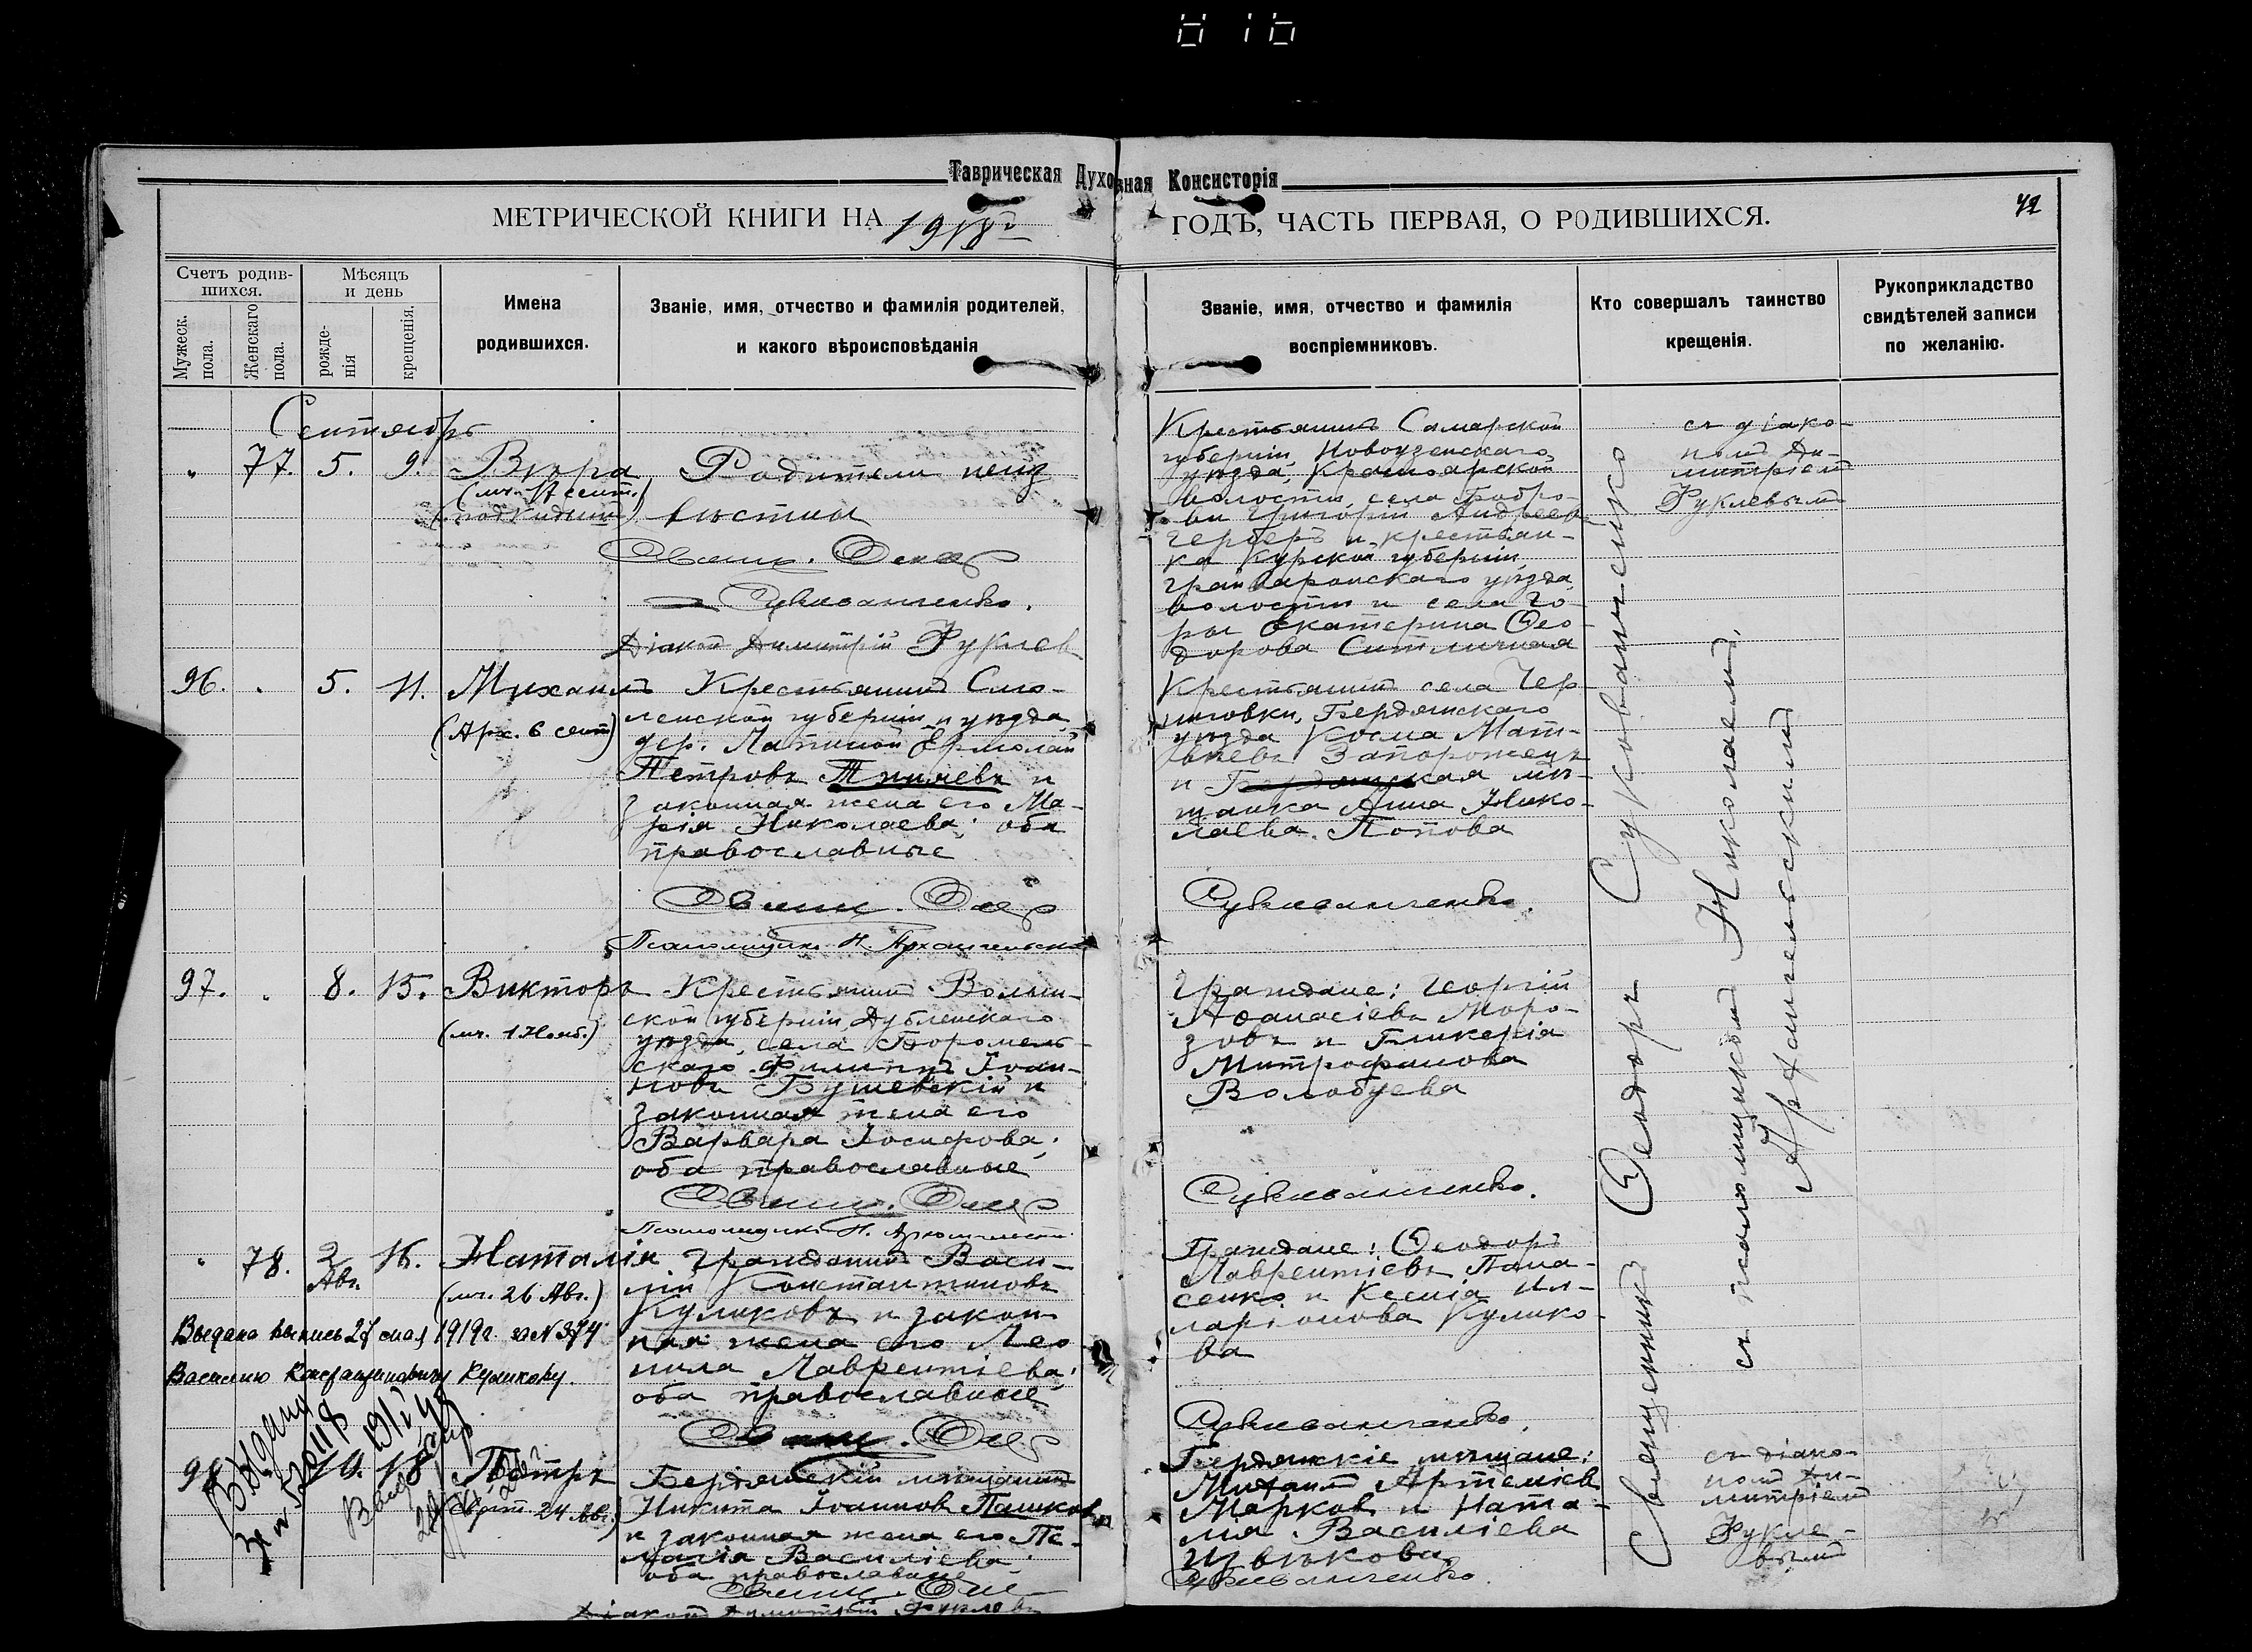 Таврическая Духовная Консисторія
МЕТРИЧЕСКОЙ КНИГИ НА 1918 г ГОДЪ, ЧАСТЬ ПЕРВАЯ, О РОДИВШИХСЯ.
42
Счетъ родив-
шихся.
Мужеск.
пола.
Женскаго
пола.
Мѣсяцъ
и день
рожде-
нія
крещенія.
Имена
родившихся.
Званіе, имя, отчество и фамилія родителей,
и какого вѣроисповѣданія
Званіе, имя, отчество и фамилія
воспріемниковъ.
Кто совершалъ таинство
крещенія.
Рукоприкладство
свидѣтелей записи
по желанію.
Сентябрь
77. 5. 9. Вѣра
(мч. 17 сент.)
(подкидышъ)
Родители неиз
вѣстны
Свящ. Ѳеод
Сукованченко.
Діаконъ Димитрій Фуклев
Крестьянинъ Самарской
губерніи, Новоузенскаго
уѣзда, Красноярской
волости, села Бобро-
вки Григорій Андреевъ
Герберъ и крестьян-
ка Курской губерніи,
Грайворонскаго уѣзда
волости и села Го-
ры Екатерина Ѳео-
дорова Ситличная
съ діако-
номъ Ди-
митріемъ
Фуклевымъ
96. 5. 11. Михаилъ
(Арх. 6 сент)
Крестьянинъ Смо-
ленской губерніи и уѣзда
дер. Лапиной Ермолай
Петровъ
законная жена его Ма-
рія Николаева; оба
православные
Свящ. Ѳеод
Псаломщикъ Н. Архангельскій
Крестьянинъ села Чер
ниговки, Бердянскаго
уѣзда Косма Мат-
вѣевъ Запорожецъ
и Бердянская мѣ-
щанка Анна Нико-
лаева Попова
Сукованченко.
97. 8. 15. Викторъ
(мч. 1 Нояб.)
Крестьянинъ Волын-
ской губерніи, Дубленскаго
уѣзда, села Боромель-
скаго Филиппъ Іоан-
новъ Бушевскій и
законная жена его
Варвара Іосифова;
оба православные
Свящ. Ѳеод
Псаломщикъ Н. Архангельскій
Граждане: Георгій
Аѳанасіевъ Моро-
зовъ и Гликерія
Митрофанова
Волобуева
Сукованченко.
78. 2 Авг. 16. Наталія
(мч. 26 Авг.)
Гражданинъ Васи-
лій Константиновъ
Куликовъ и закон
ная жена его Лео
нила Лаврентіева;
оба православные
Свящ. Ѳеод
Граждане: Ѳеодоръ
Лаврентіевъ Пана-
сенко и Ксенія Ил-
ларіонова Кулико-
ва
Сукованченко.
Выдана выпись 27 мая 1919 г. за № 374
Василію Константиновичу Куликову.
98. 10. 18. Петръ
24 Авг.)
Бердянскій мѣщанинъ
Никита Іоанновъ Пашков
и законная жена его Пе-
лагія Василіева
оба православные
Свящ. Ѳеод
Діаконъ Димитрій Фуклевъ
Бердянскіе мѣщане:
Михаилъ Артеміевъ
Марковъ и Ната-
лія Василіева
Цвѣткова
Сукованченко.
съ діако-
номъ Ди-
митріемъ
Фукле-
вымъ
Священникъ Ѳеодоръ Сукованченко
съ псаломщикомъ Николаемъ
Архангельскимъ
Выдана